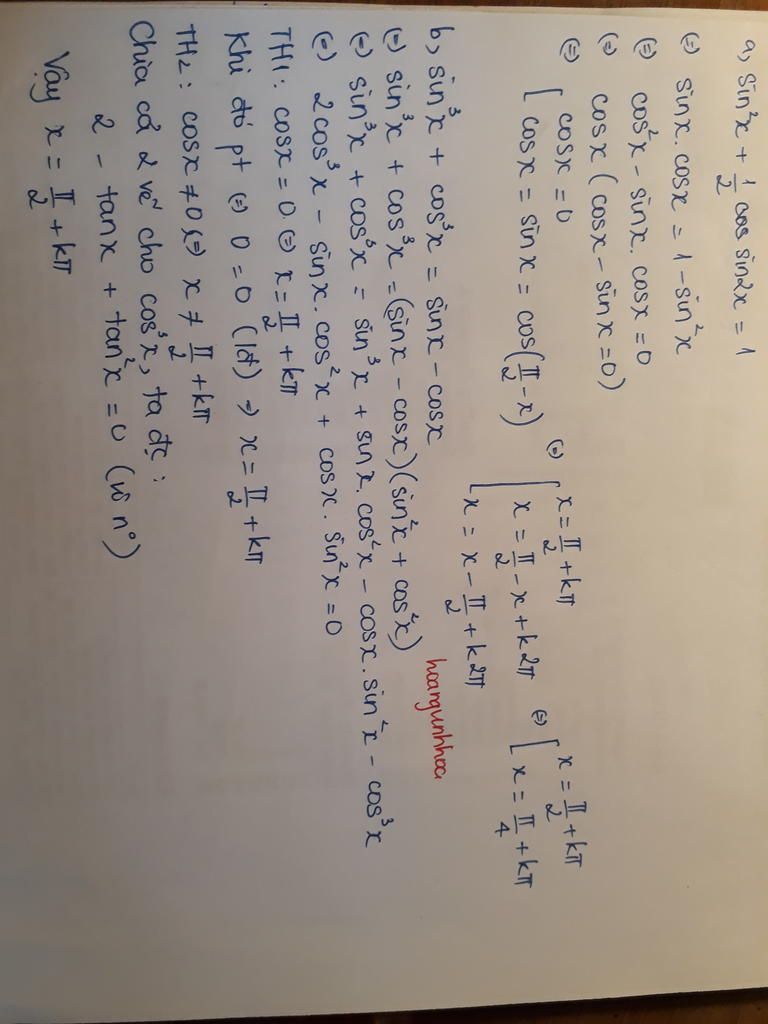 a, sin²x + 1/2 cos sin2x = 1
(=) sinx.cosx = 1 - sin²x
(=) cos²x - sinx.cosx = 0
(=) cosx (cosx - sinx = 0)
(=) [ cosx = 0 (=) [ x = π/2 + kπ (=) [ x = π/2 + kπ
cosx = sinx = cos(π/2 - x) x = π/2 - x + k2π x = π/4 + kπ
x = x - π/2 + k2π
b, sin³x + cos³x = sinx - cosx
(=) sin³x + cos³x = (sinx - cosx)(sin²x + cos²x)
hoangunhhoa
(=) sin³x + cos³x = sin³x + sinx.cos²x - cosx.sin²x - cos³x
(=) 2cos³x - sinx.cos²x + cosx.sin²x = 0
TH1: cosx = 0 (=) x = π/2 + kπ
Khi đó pt (=) 0 = 0 (lđ) => x = π/2 + kπ
TH2: cosx ≠ 0 (=) x ≠ π/2 + kπ
Chia cả 2 vế cho cos³x, ta đc:
2 - tanx + tan²x = 0 (vô n°)
Vậy x = π/2 + kπ